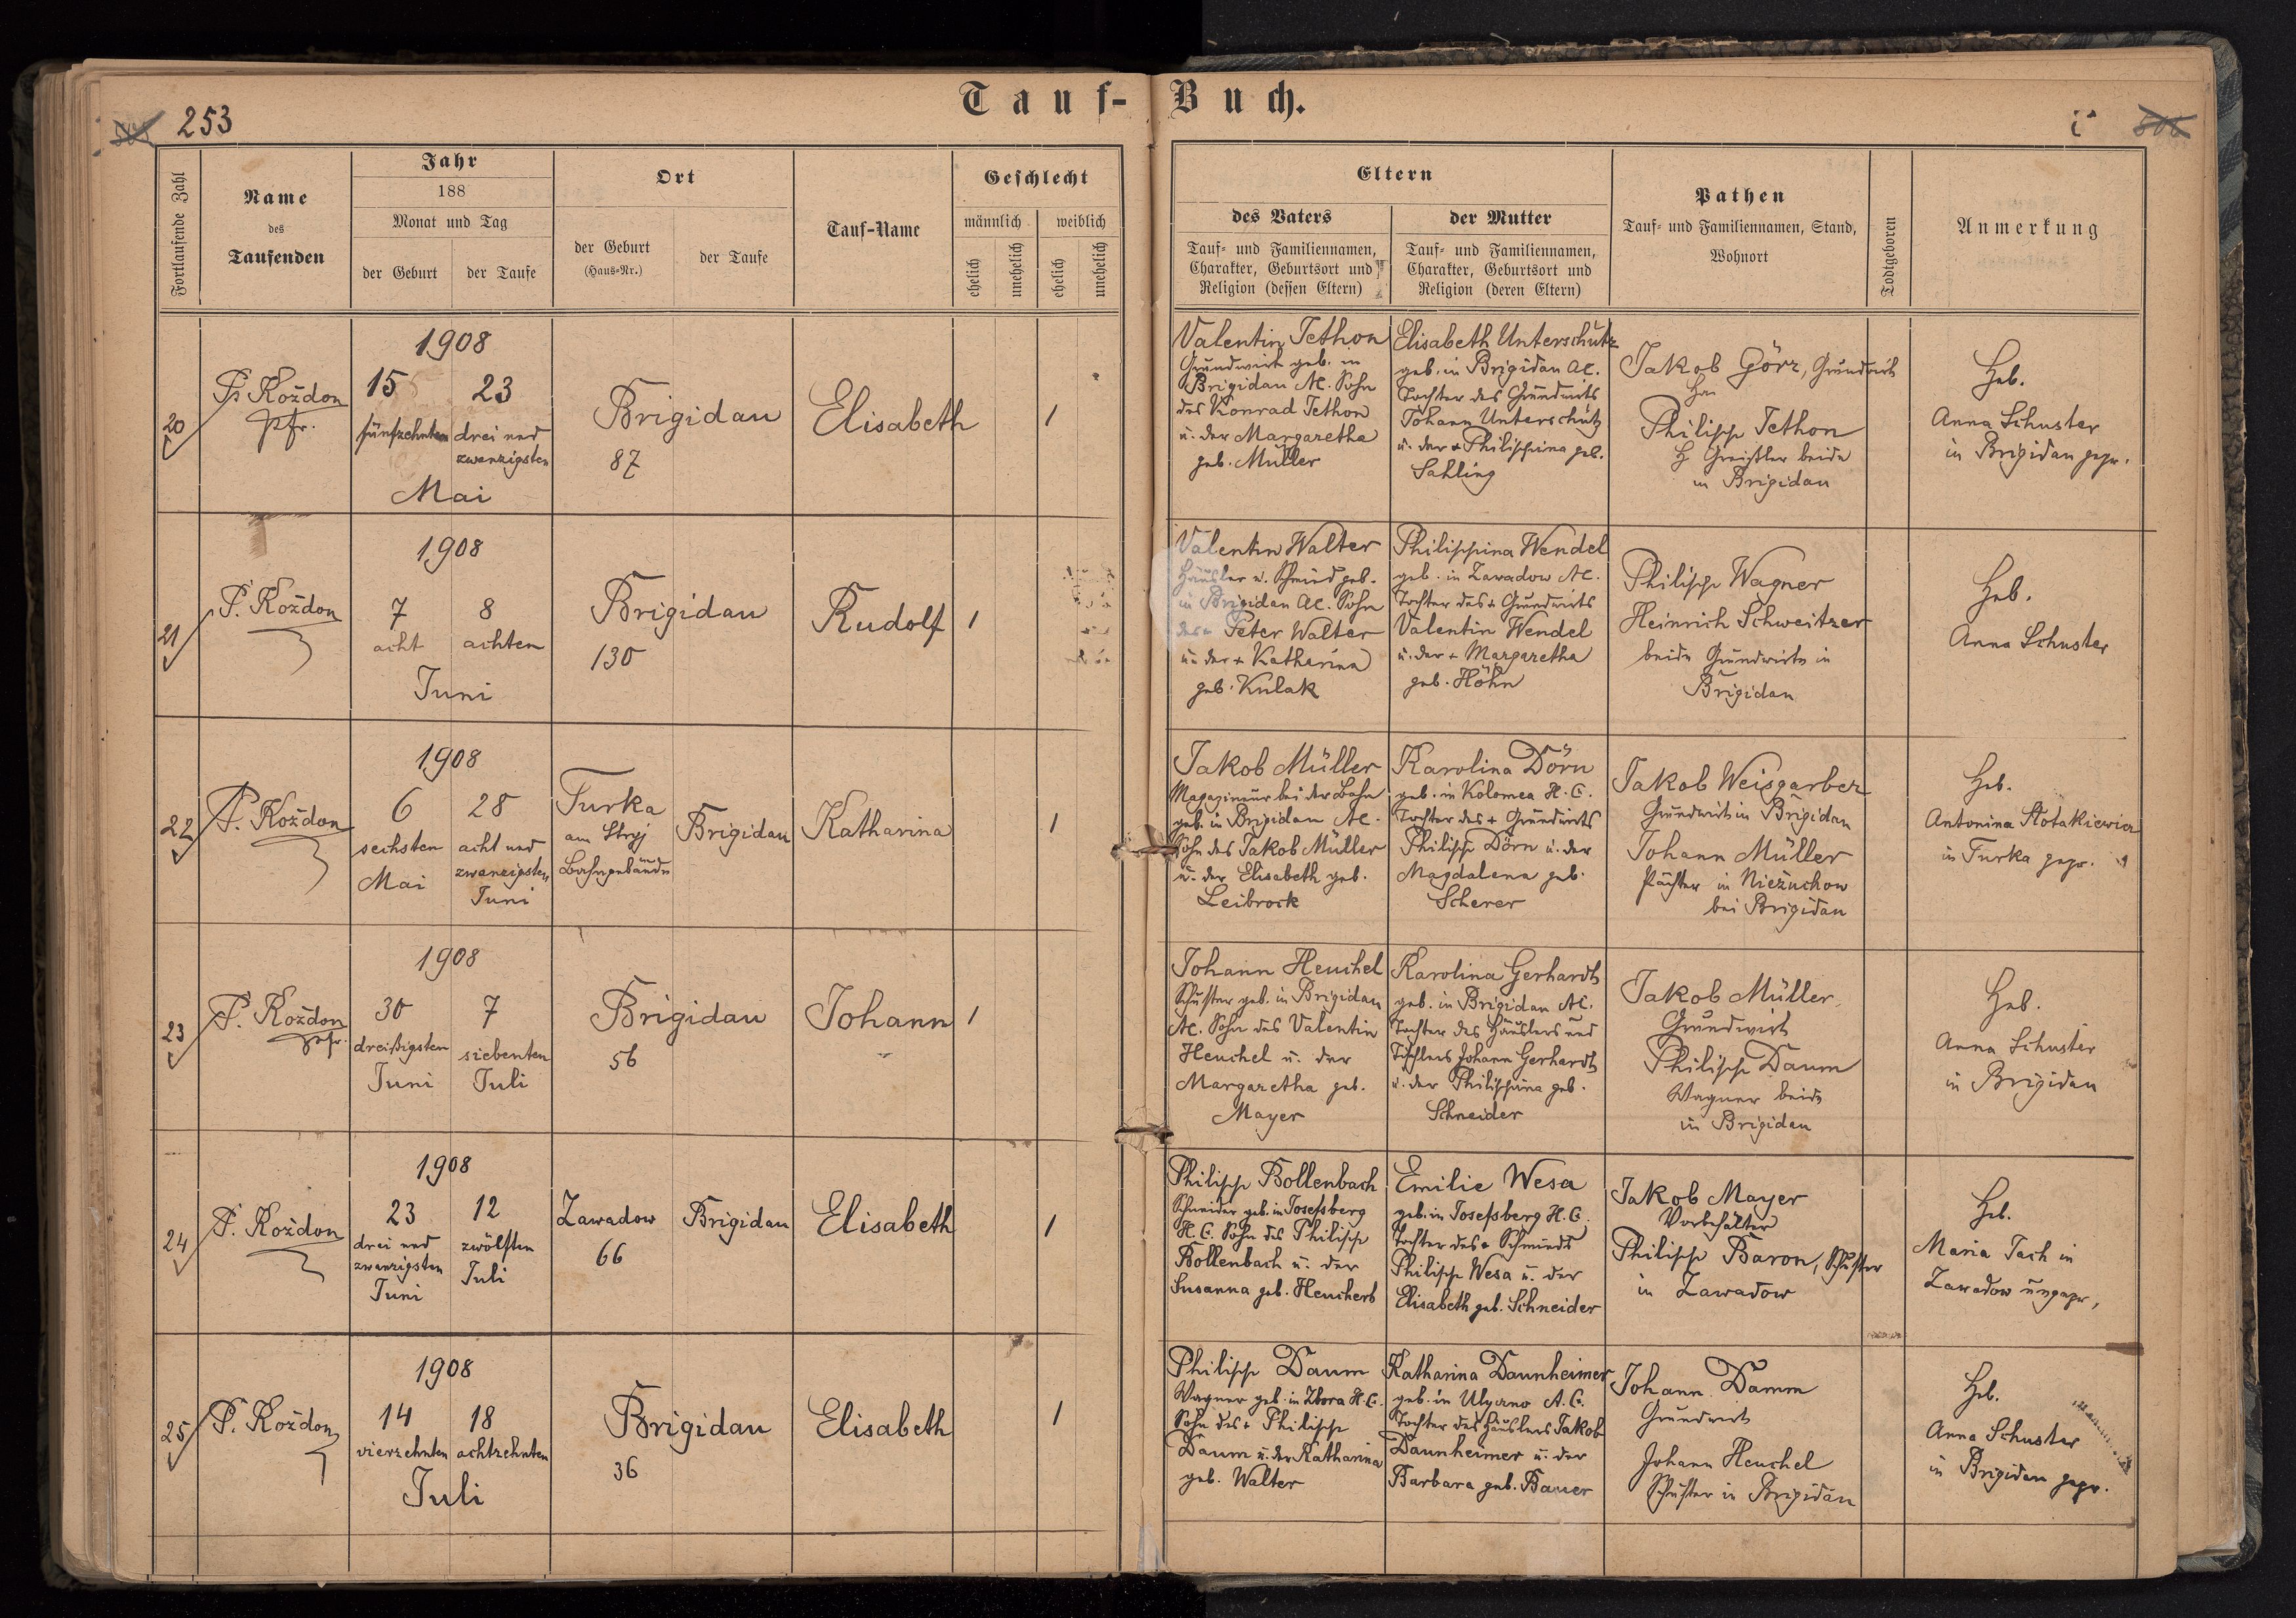 Tauf-Buch.
253
506
Fortlaufende Zahl
Name
des
Taufenden
Jahr
188
Monat und Tag
der Geburt
der Taufe
Ort
der Geburt
(Haus-Nr.)
der Taufe
Tauf-Name
Geschlecht
männlich
weiblich
ehelich
unehelich
ehelich
unehelich
Eltern
des Vaters
Tauf- und Familiennamen,
Charakter, Geburtsort und
Religion (dessen Eltern)
der Mutter
Tauf- und Familiennamen,
Charakter, Geburtsort und
Religion (deren Eltern)
Pathen
Tauf- und Familiennamen, Stand,
Wohnort
Todtgeboren
Anmerkung
20
Koždon
Pfr.
1908
15
fünfzehnten
23
drei und
zwanzigsten
Mai
Brigidau
87
Elisabeth
1
Valentin Tethon
Grundwirt geb. in
Brigidau AC. Sohn
des Konrad Tethon
u. der Margaretha
geb. Müller
Elisabeth Unterschütz
geb. in Brigidau AC.
Tochter des Grundwirts
Johann Unterschütz
u. der + Philippina geb.
Sahling
Jakob Görz, Grundwirt
Philipp Tethon
Greißler beide
in Brigidau
Heb.
Anna Schuster
in Brigidau gepr.
21
P. Koždon
1908
7
acht
8
achten
Juni
Brigidau
130
Rudolf
1
Valentin Walter
Häusler u. Schmied geb.
in Brigidau AC. Sohn
des + Peter Walter
u. der + Katharina
geb. Kulak
Philippina Wendel
geb. in Zawadow AC.
Tochter des + Grundwirts
Valentin Wendel
u. der + Margaretha
geb. Höhn
Philipp Wagner
Heinrich Schweitzer
beide Grundwirte in
Brigidau
Heb.
Anna Schuster
22
P. Koždon
1908
6
sechsten
Mai
28
acht und
zwanzigsten
Juni
Turka
am Stryj
Bahngebäude
Brigidau
Katharina
1
Jakob Müller
Magazineur bei der Bahn
geb. in Brigidau AC.
Sohn des Jakob Müller
u. der Elisabeth geb.
Leibrock
Karolina Dörn
geb. in Kolomea H.C.
Tochter des + Grundwirts
Philipp Dörn u. der
Magdalena geb.
Scherer
Jakob Weisgarber
Grundwirt in Brigidau
Johann Müller
Pächter in Nieżuchow
bei Brigidau
Heb.
Antonina
in Turka gepr.
23
P. Koždon
pfr.
1908
30
dreißigsten
Juni
7
siebenten
Juli
Brigidau
56
Johann
1
Johann Heuchel
Schuster geb. in Brigidau
AC. Sohn des Valentin
Heuchel u. der
Margaretha geb.
Mayer
Karolina Gerhardt
geb. in Brigidau AC.
Tochter des Häuslers und
Tischlers Johann Gerhardt
u. der Philippina geb.
Schneider
Jakob Müller,
Grundwirt
Philipp Daum
Wagner beide
in Brigidau
Heb.
Anna Schuster
in Brigidau
24
P. Koždon
1908
23
drei und
zwanzigsten
Juni
12
zwölften
Juli
Zawadow
66
Brigidau
Elisabeth
1
Philipp Bollenbach
Schneider geb. in Josefsberg
H.C. Sohn des Philipp
Bollenbach u. der
Susanna geb. Heuchert
Emilie Wesa
geb. in Josefsberg H.C.
Tochter des + Schmieds
Philipp Wesa u. der
Elisabeth geb. Schneider
Jakob Mayer
Vorbehälter
Philipp Baron, Schuster
in Zawadow
Heb.
Maria Tach in
Zawadow ungepr,
25
P. Koždon
1908
14
vierzehnten
18
achtzehnten
Juli
Brigidau
36
Elisabeth
1
Philipp Daum
Wagner geb. in Zbora H.C.
Sohn des + Philipp
Daum u. der Katharina
geb. Walter
Katharina Daunheimer
geb. in Ulyczno A.C.
Tochter des Häuslers Jakob
Daunheimer u. der
Barbara geb. Bauer
Johann Damm
Grundwirt
Johann Heuchel
Schuster in Brigidau
Heb.
Anna Schuster
in Brigidau gepr.